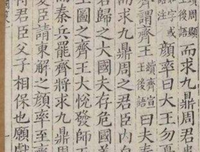 而求九鼎周君
顏率曰大王勿憂
齊謂齊王曰夫秦
而求九鼎周之君臣内自
歸之大國夫存危國
圖之齊王大悅發師五
而秦兵罷齊將求九鼎周
憂臣請東解之顏率至
君臣父子相保也願獻